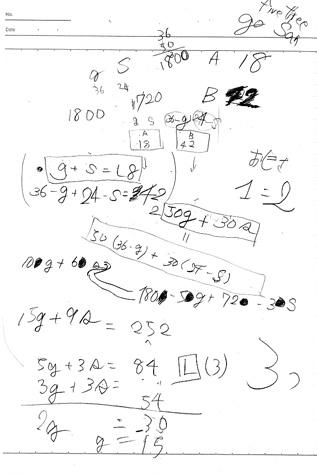 No.
Date
five three
go San
36
50
1800 A 18
g S
36 24
720 B 12
1800
g S 36-g 24-S
A
18
B
42
g + S = 18
36-g+24-S=42
1=2
2 50g + 30s
=
50(36-g)+30(24-S)
100g+60s
1800-50g+720-30S
15g+9s = 252
5g+3s = 84 L (3)
3g+3s= 54
2g = 30
g = 15
3,